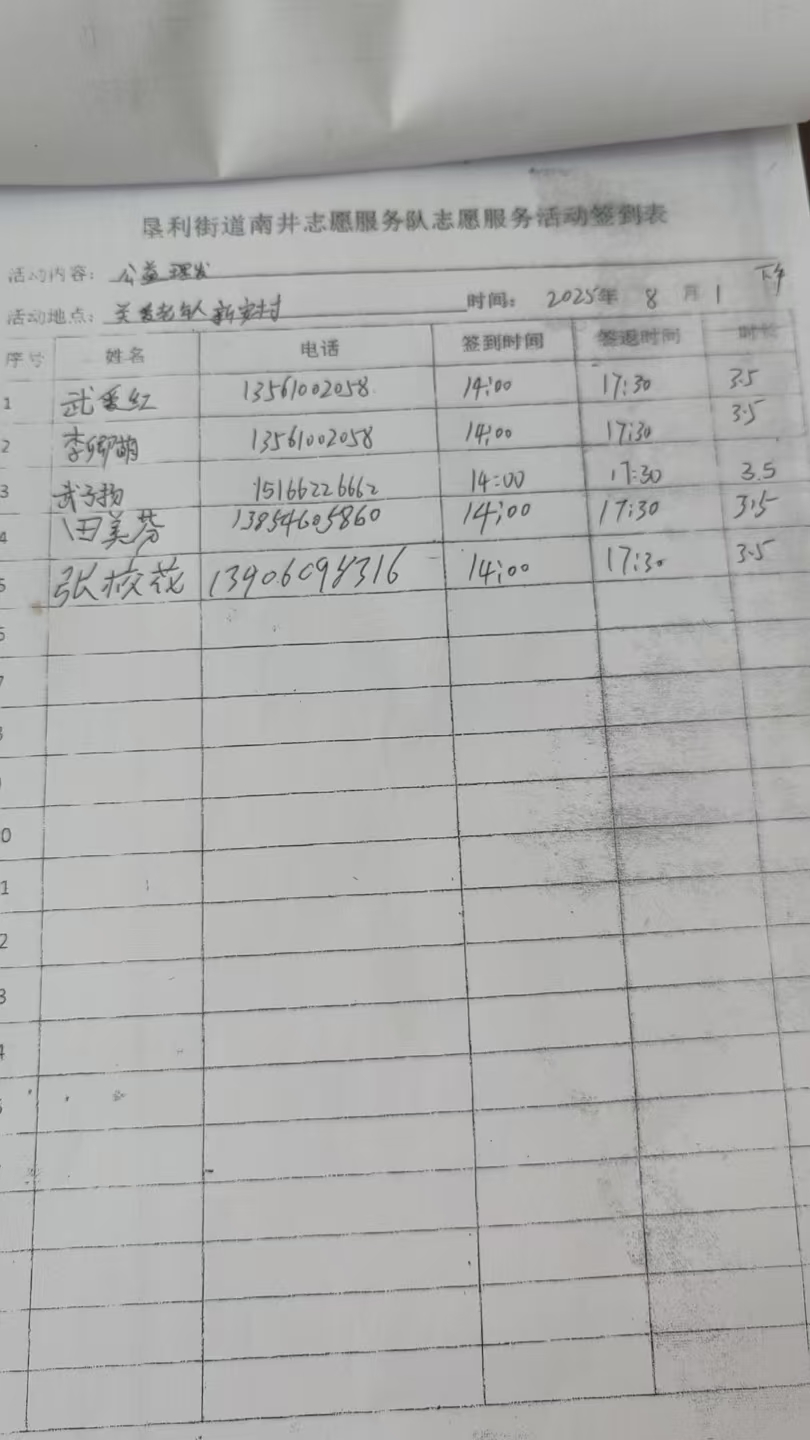 垦利街道南井志愿服务队志愿服务活动签到表
活动内容: 公益理发
活动地点: 关爱老年人新安村 时间: 2025年 8 月 1 下午
序号 姓名 电话 签到时间 签退时间 时长
1 武爱红 13561002058 14:00 17:30 3.5
2 李卿萌 13561002058 14:00 17:30 3.5
3 武子扬 15166226662 14:00 17:30 3.5
4 田美芬 13854605860 14:00 17:30 3.5
5 张校花 13906098316 14:00 17:30 3.5